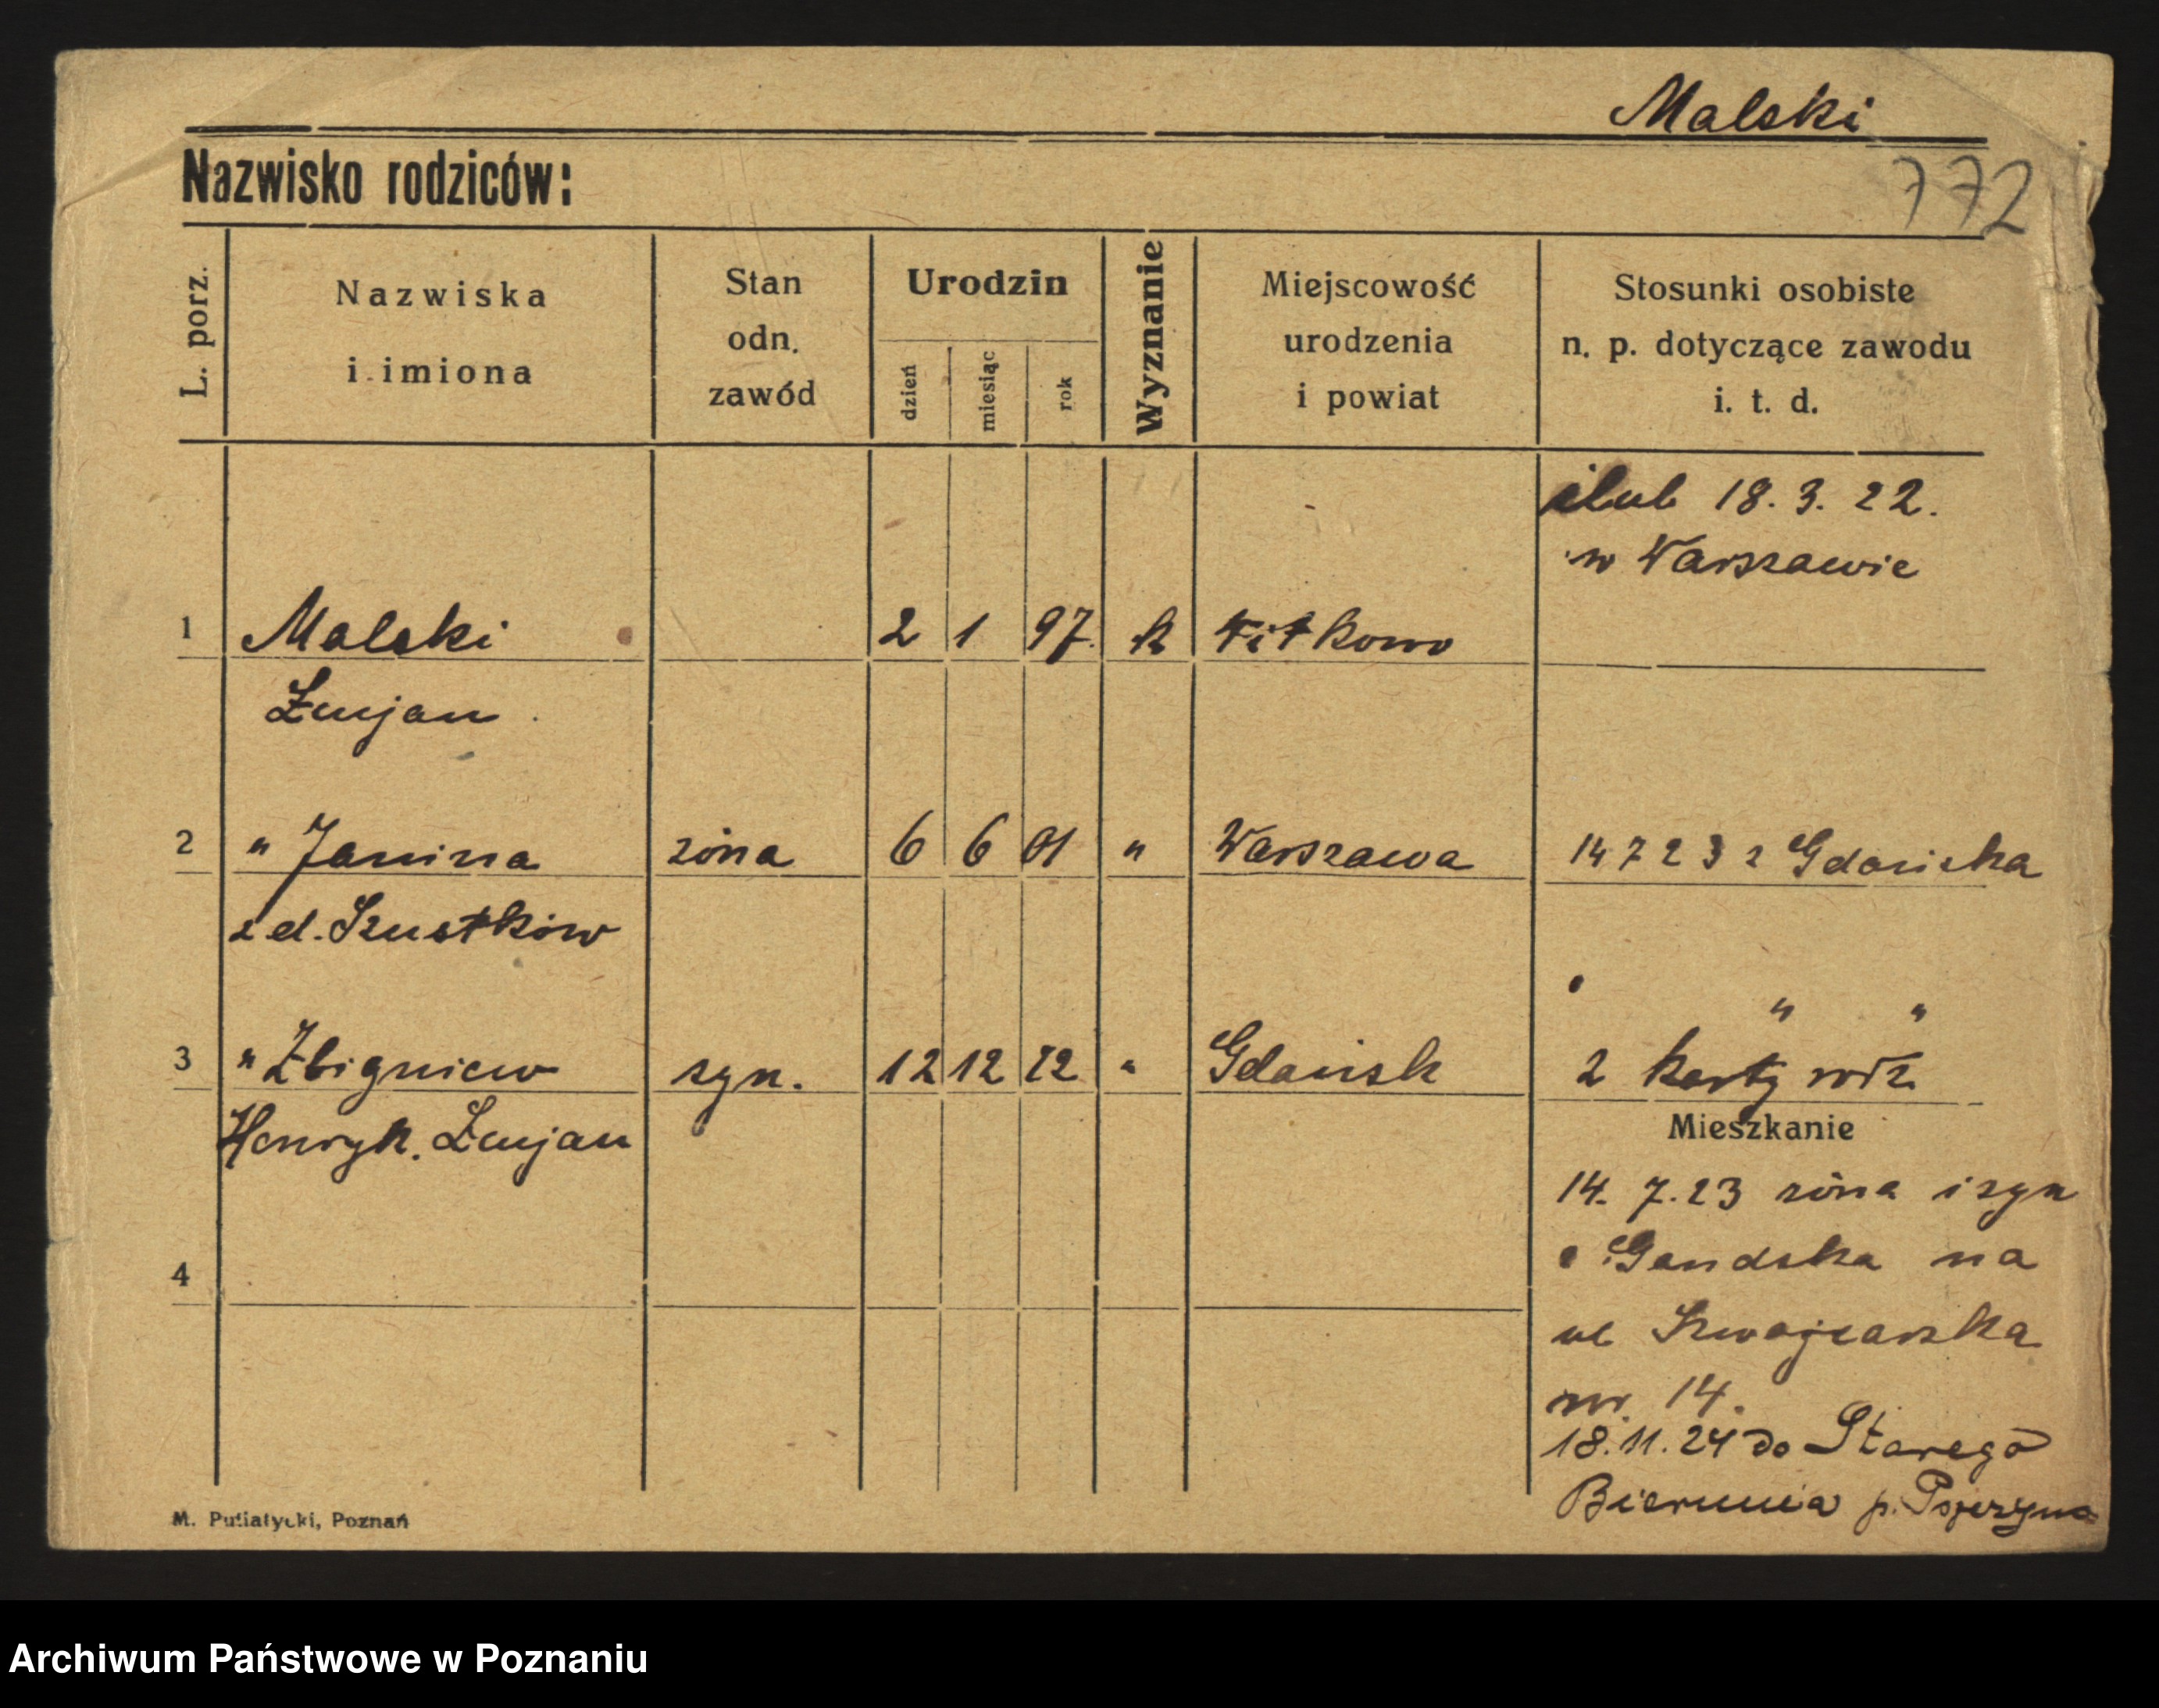 Malski
Nazwisko rodziców:
772
L. porz.
Nazwiska
i imiona
Stan
odn.
zawód
Urodzin
dzień
miesiąc
rok
Wyznanie
Miejscowość
urodzenia
i powiat
Stosunki osobiste
n. p. dotyczące zawodu
i. t. d.
ślub 18. 3. 22.
w Warszawie
1 Malski 2 1 97. k Witkowo
Łucjan
2 " Janina żona 6 6 01 " Warszawa 14 7 23 z Gdańska
z d. Szustków
" "
3 " Zbigniew syn. 12 12 22 " Gdańsk z karty rodz
Henryk. Łucjan
Mieszkanie
14. 7. 23 żona i syn
z Gandska na
ul Szwajcarska
4
nr. 14.
18. 11. 24 do Starego
Bierunia p.
M. Putiatycki, Poznań
Archiwum Państwowe w Poznaniu